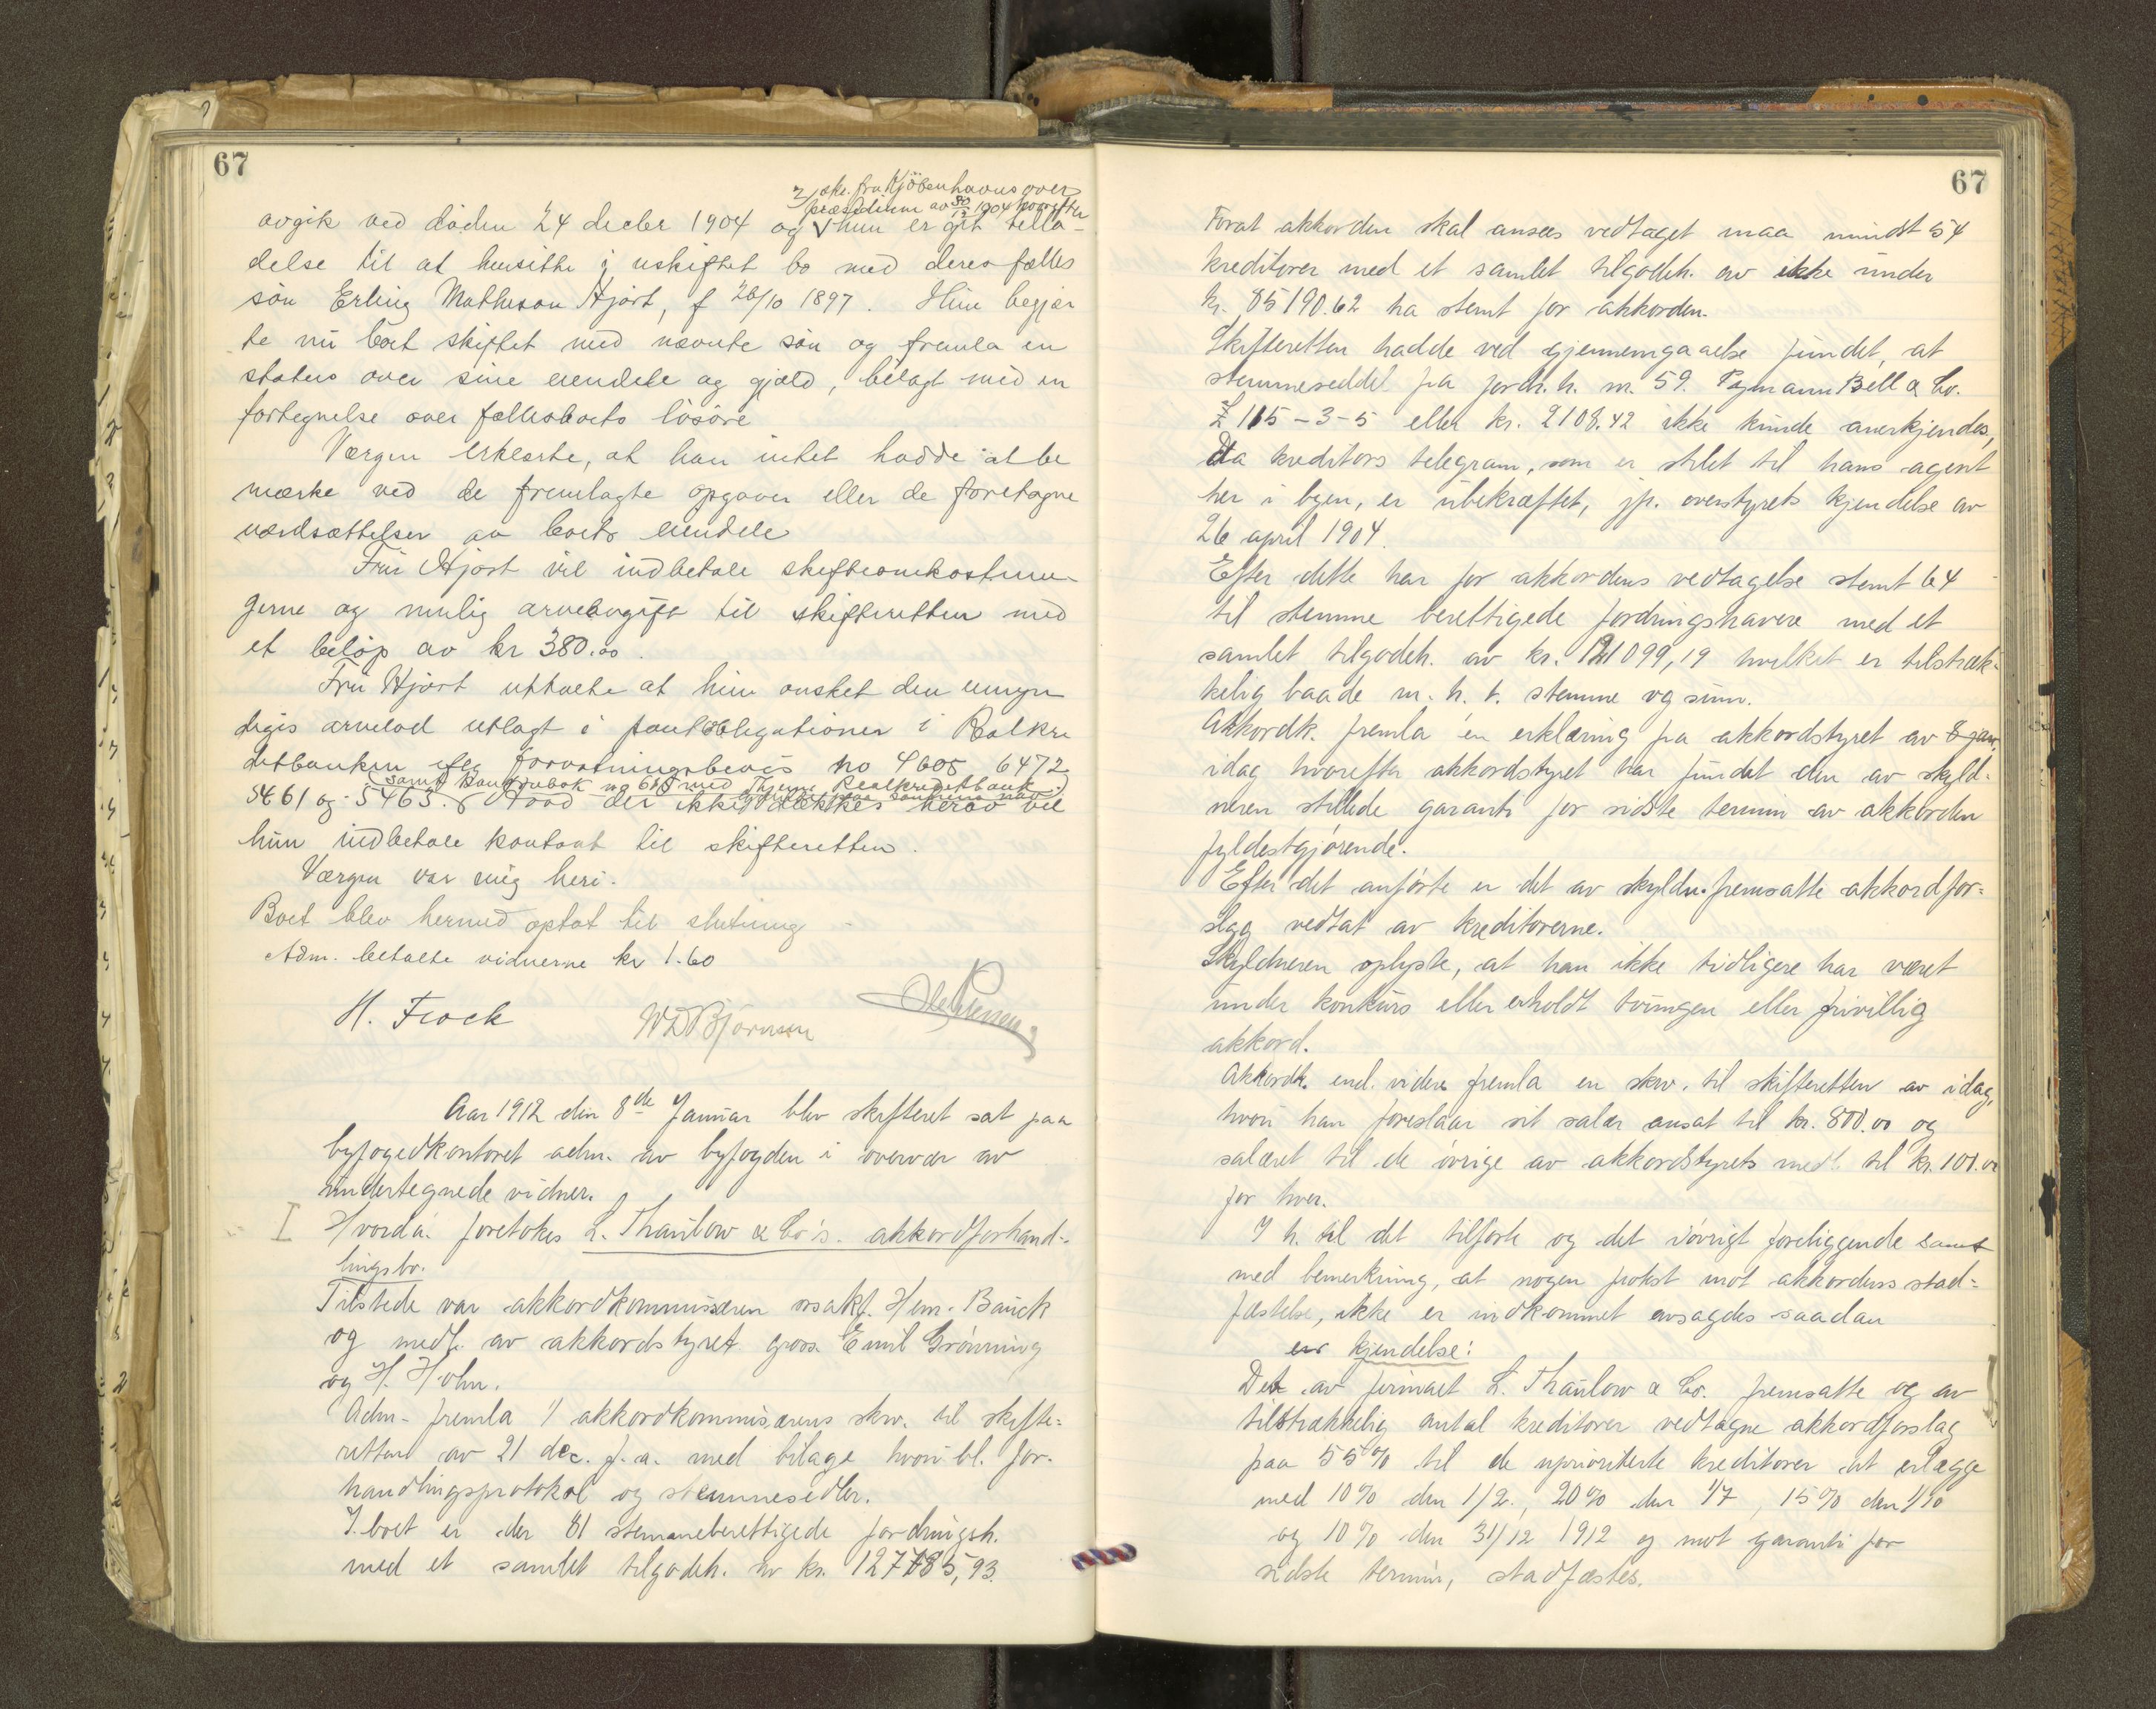 67
skr. fra Kjöbenhavns over
præsidium av 30/12 1904 hvorefter
avgik ved döden 24 decbr 1904 og hun er git tilla-
delse til at hensitte i uskiftet bo med deres fælles
sön Erling Matheson Hjort, f 26/10 1897. Hun begjær
te nu boet skiftet med nævnte sön og fremla en
status over sine eiendele og gjæld, bilagt med en
fortegnelse over fællesboets lösöre
Værgen erklærte, at han intet hadde at be
mærke ved de fremlagte opgaver eller de foretagne
værdsættelser av boets eiendele
Fru Hjort vil indbetale skifteomkostnin-
gerne og mulig arveavgift til skifteretten med
et belöp av kr 380.00.
Fru Hjort uttalte at hun önsket den umyn
diges arvelod utlagt i pantobligationer i Realkre
ditbanken iflg forvatningsbevis no 4605 6472
samt bankbok no 615 med Realkreditbank
5461 og 5463. Hvad der ikke dækkes herav vil
hun indbetale kontant til skifteretten.
Værgen var enig heri.
Boet blev hermed optat til slutning
Adm. betalte vidnerne kr 1.60
H. Frock
W D Björnsen
Aar 1912 den 8de Januar blev skifteret sat paa
byfogedkontoret adm. av byfogden i overvær av
undertegnede vidner.
I Hvorda foretokes L. Thaulow & Co's. akkordforhand-
lingsbo.
Tilstede var akkordkommissæren o.r.sakf. Hem. Bauck
og medl. av akkordstyret gross. Emil Grönning
og H. Holm.
Adm. fremla 1/ akkordkommisærens skr. til skifte-
retten av 21 dec. f.a. med bilage hvori bl. for-
handlingsprotokol og stemmesedler.
I boet er der 81 stemmeberettigede fordringsh.
med et samlet tilgodeh. av kr. 127785,93.
67
Forat akkorden skal ansees vedtaget maa mindst 54
kreditorer med et samlet tilgodeh. av ikke under
kr. 85190.62 ha stemt for akkorden.
Skifteretten hadde ved gjennemgaaelse fundet, at
stemmeseddel fra fordr.h. nr. 59. Bell & Co.
£ 115-3-5 eller kr. 2108.42 ikke kunde anerkjendes,
da kreditors telegram, som er stilet til hans agent
her i byen, er ubekræftet, jfr. overstyrets kjendelse av
26 april 1904.
Efter dette har for akkordens vedtagelse stemt 64
til stemme berettigede fordringshavere med et
samlet tilgodeh. av kr. 121099,19 hvilket er tilstræk-
kelig baade m. h. t. stemme og sum.
Akkordk. fremla en erklæring fra akkordstyret av 8 jan.
idag hvorefter akkordstyret har fundet den av skyld-
neren stillede garanti for sidste termin av akkorden
fyldestgjörende.
Efter det anförte er det av skyldn. fremsatte akkordfor-
slag vedtat av kreditorerne.
Skyldneren oplyste, at han ikke tidligere har været
under konkurs eller erholdt tvungen eller frivillig
akkord.
Akkordk. end. videre fremla en skr. til skifteretten av idag,
hvori han foreslaar sit salær ansat til kr. 800.00 og
salæret til de övrige av akkordstyrets medl. til kr. 100.00
for hver.
I h. til det tilförte og det iövrigt foreliggende samt
med bemerkning, at nogen protest mot akkordens stad-
fæstelse, ikke er indkommet avsagdes saadan
kjendelse:
Det av firmaet L. Thaulow & Co. fremsatte og av
tilstrækkelig antal kreditorer vedtagne akkordforslag
paa 55% til de uprioriterte kreditorer at erlægge
med 10% den 1/2., 20% den 1/7, 15% den 1/10
og 10% den 31/12 1912 og mot garanti for
sidste termin, stadfæstes.